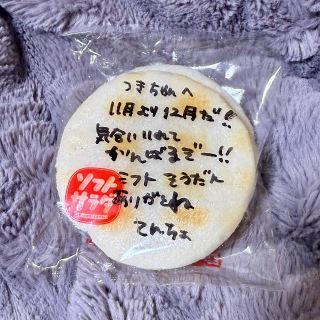 つきちぬへ
11月より12月だ!!
気合いいれて
がんばるぞー!!
シフト そうだん
ありがとね
てんちょ
ソフト
サラダ